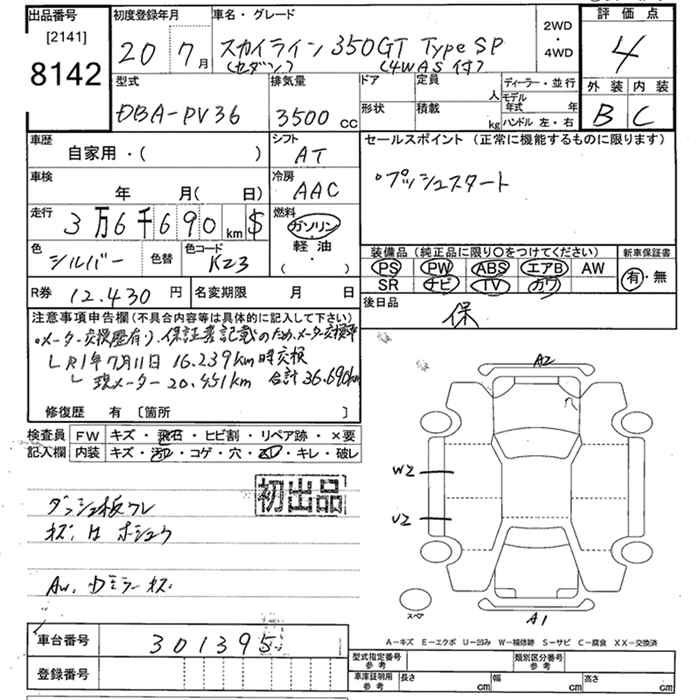 出品番号
[2141]
8142
初度登録年月
20 7月
車名・グレード
スカイライン 350GT Type SP
(セダン) (4WAS付)
2WD
・
4WD
評価点
4
外装 内装
B C
型式
DBA-PV36
排気量
3500 CC
ドア
形状
定員
人
積載
kg
ディーラー・並行
モデル年式 年
ハンドル 左・右
車歴
自家用・( )
シフト
AT
セールスポイント (正常に機能するものに限ります)
・プッシュスタート
車検
年 月( 日)
冷房
AAC
走行
3万6千690km $
燃料
ガソリン
軽油
( ・ )
色
シルバー
色替
色コード
K23
装備品 (純正品に限り○をつけてください)
PS PW ABS エアB AW
SR ナビ TV カワ
新車保証書
有・無
R券 12.430 円
名変期限 月 日
後日品
保
注意事項申告欄 (不具合内容等は具体的に記入して下さい)
・メーター交換歴有り、保証書記載のため、メーター交換車
└ R1年7月11日 16.239km時交換
└ 現メーター20.451km 合計36.690km
修復歴 有 [箇所 ]
検査員 FW キズ・飛石・ヒビ割・リペア跡・×要
記入欄 内装 キズ・汚レ・コゲ・穴・スレ・キレ・破レ
初出品
ダッシュ板ワレ
キズ、H ホシュウ
AW、Dミラーキズ
A2
W2
U2
スペア
A1
A−キズ E−エクボ U−凹み W−補修跡 S−サビ C−腐食 XX−交換済
車台番号 301395
登録番号
型式指定番号
参考
類別区分番号
参考
車庫証明用
参考
長さ cm
幅 cm
高さ cm